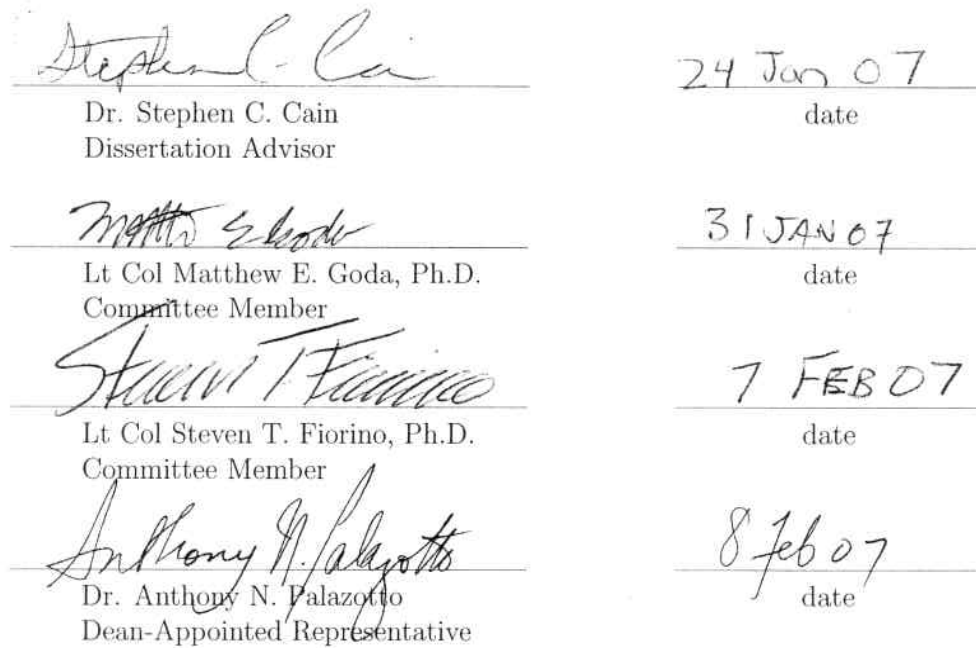 Stephen C. Cain 24 Jan 07
Dr. Stephen C. Cain date
Dissertation Advisor
31 JAN 07
Lt Col Matthew E. Goda, Ph.D. date
Committee Member
Steven T Fiorino 7 FEB 07
Lt Col Steven T. Fiorino, Ph.D. date
Committee Member
Anthony N. Palazotto 8 Feb 07
Dr. Anthony N. Palazotto date
Dean-Appointed Representative